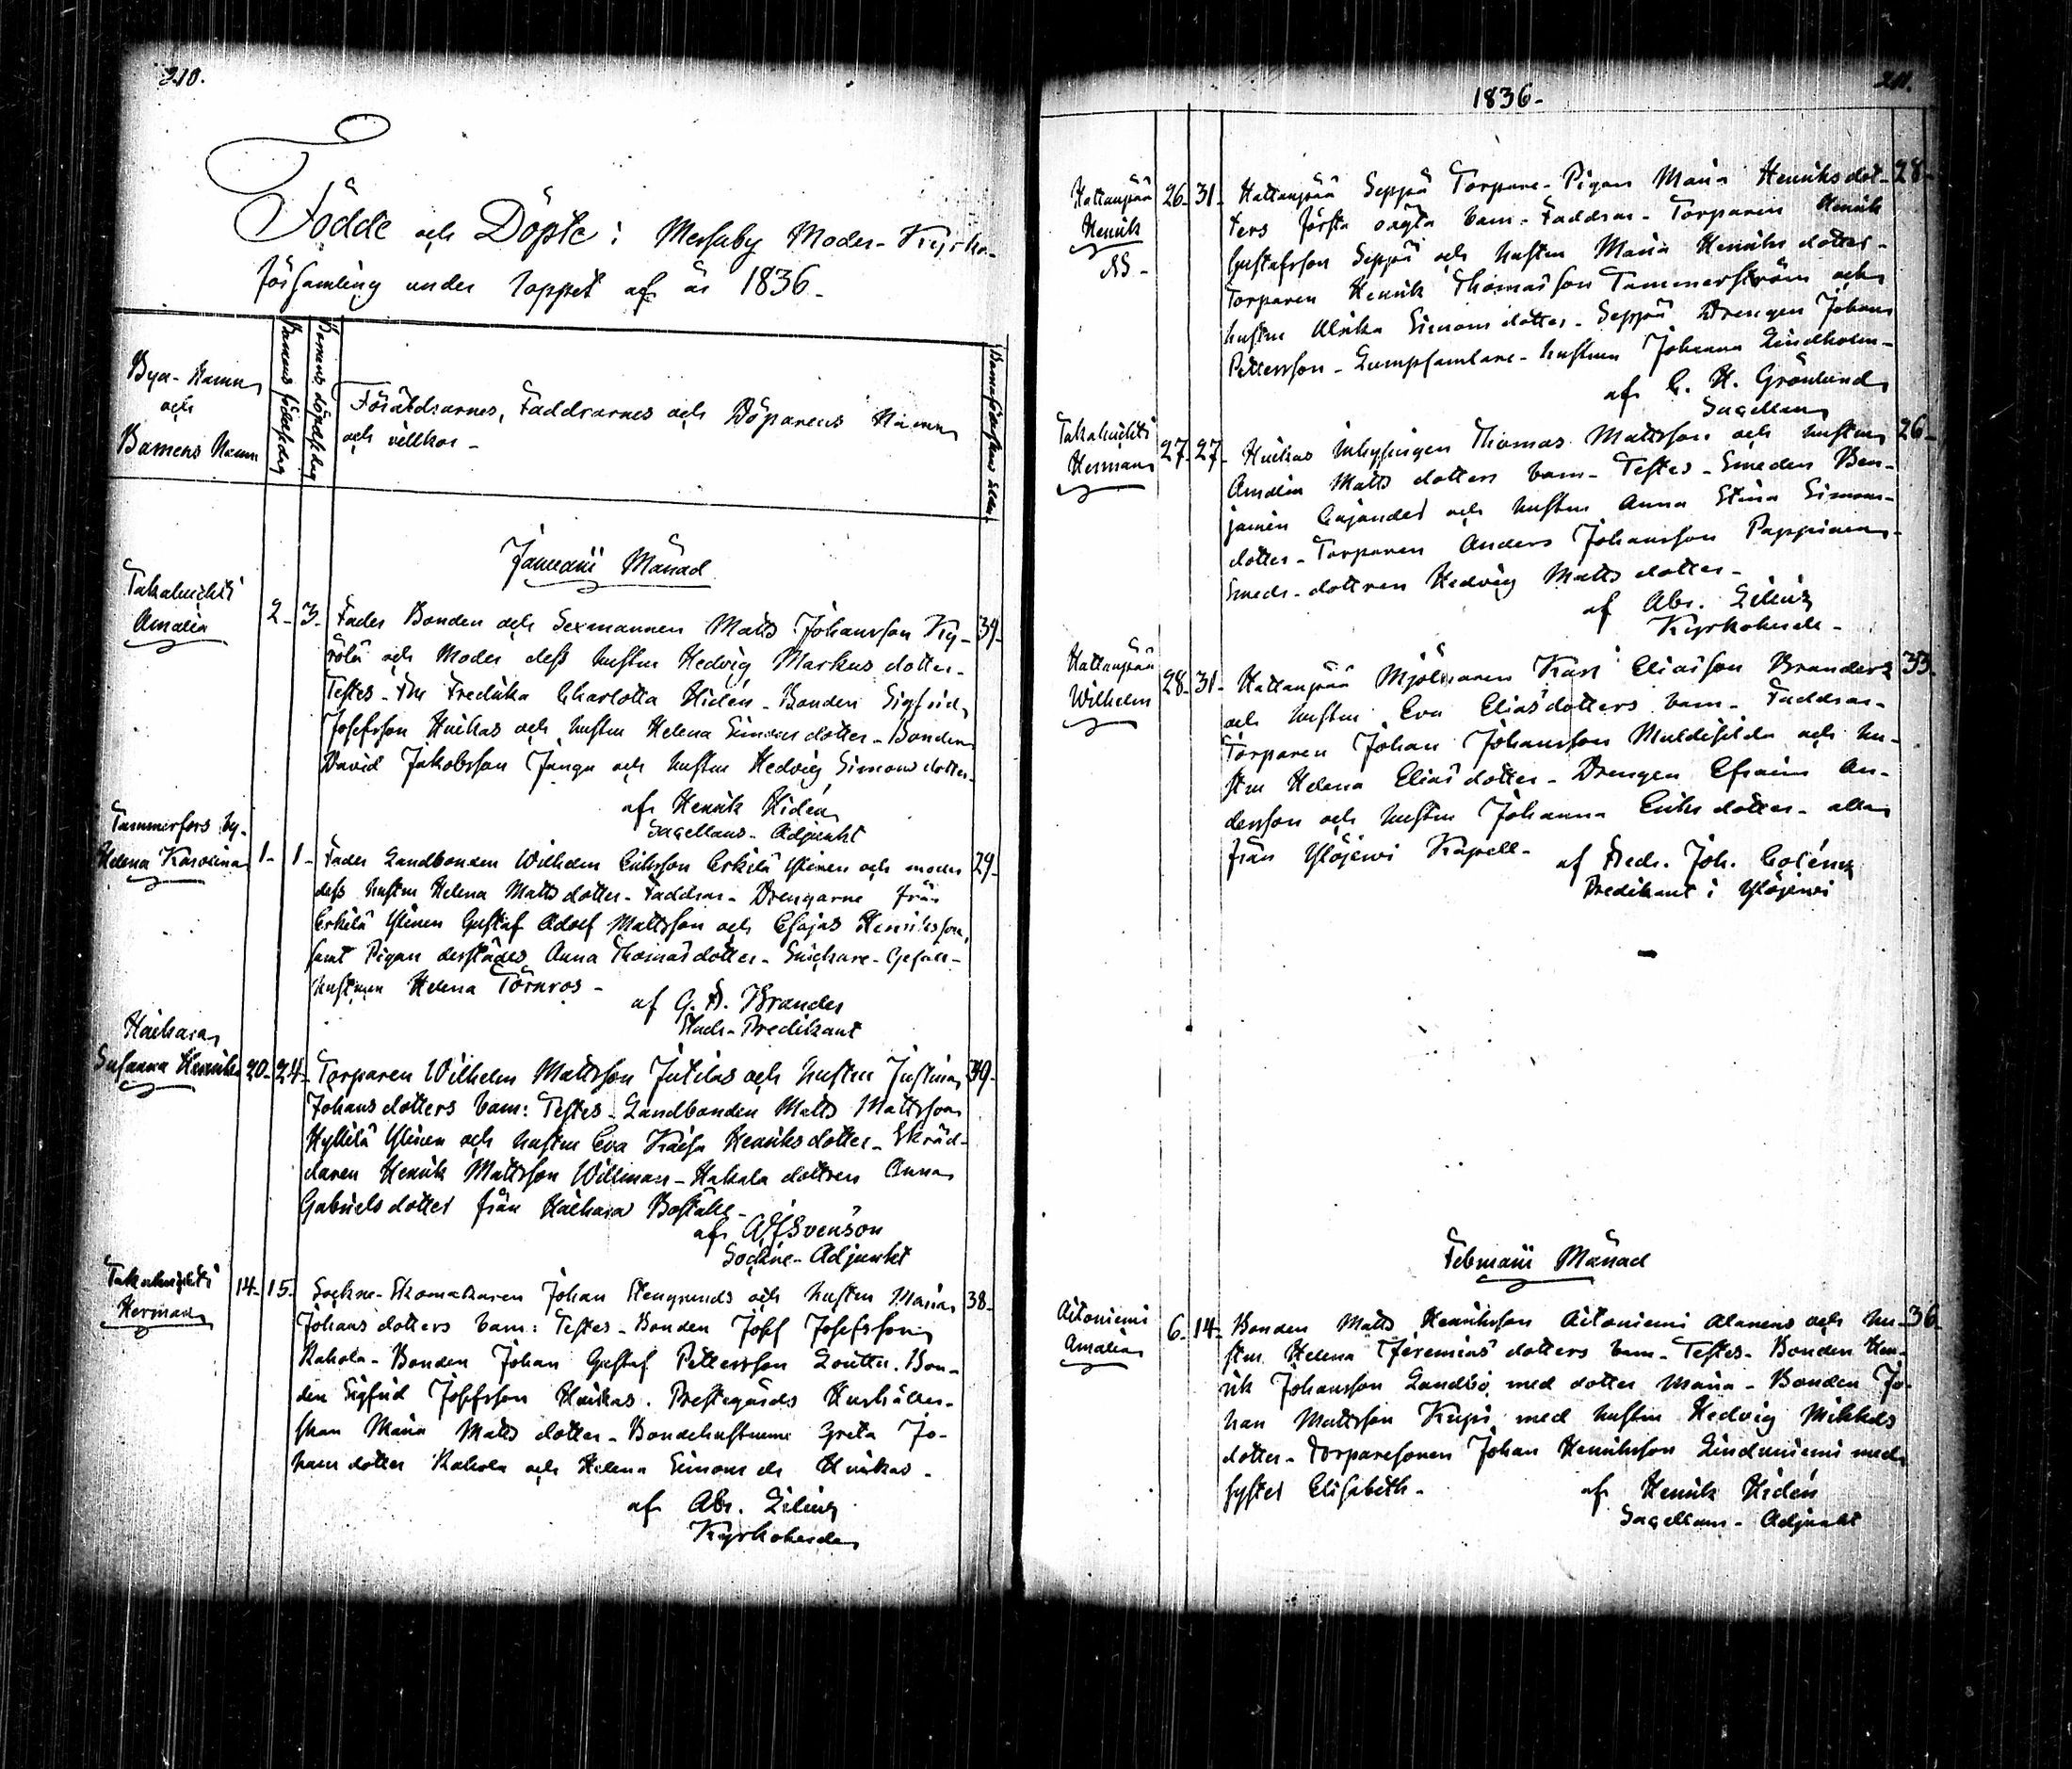 210.
Födde och Döpte i Messuby Moder-Kyrko-
församling under loppet af år 1836.
Bya-Namn
och
Barnens Namn
Barnens födelsedag
Barnens döpelsedag
Föräldrarnes, Faddrarnes och Döparens Namn
och villkor -
Januarii Månad
Takahuchti
Amalia
2 - 3 - Fader Bonden och Sexmannen Matts Johansson Ky- 39-
rölä och Moder dess hustru Hedvig Markus dotter -
Testes - Fru Fredrika Charlotta Hidén - Bonden Sigfrid
Josefsson Huikas och hustru Helena Simons dotter - Bonden
David Jakobsson Janga och hustru Hedvig Simons dotter -
af Henrik Hidén
Sacellans - Adjunkt
Tammerfors by -
Helena Karolina 1 - 1 - Fader Landbonden Wilhelm Eriksson Erkilä Ylinen och moder 29-
dess hustru Helena Matts dotter - Faddrar - Drengarne från
Erkilä Ylinen Gustaf Adolf Mattsson och Esajas Henriksson,
samt Pigan derstädes Anna Thomasdotter - Snickare - Gesäll -
hustrun Helena Törnros -
af G. A. Brander
Stads-Predikant
Haihara
Susanna Henrika 20 - 24 - Torparen Wilhelm Mattsson Jutilas och hustru Justina 39-
Johans dotters barn: Testes - Landbonden Matts Mattsson
Hyllilä Ylinen och hustru Eva Kaisa Henriksdotter - Skräd-
daren Henrik Mattsson Willman - Hakala dottren Anna
Gabriels dotter från Haihara Boställe -
af A. Svenson
Sockne - Adjunkt
Takahuchti
Herman
14 - 15 - Sockne - Skomakaren Johan Stengrunds och hustru Maria 38-
Johans dotters barn: Testes - Bonden Josef Josefsson
Kahola - Bonden Johan Gustaf Pettersson Loutta. Bon-
den Sigfrid Josefsson Huikas. Prestegårds Hushåller-
skan Maria Matts dotter - Bondehustrurne Greta Jo-
hans dotter Kahola och Helena Simons dr Huikas -
af Abr. Lilius
Kyrkoherde
211.
1836 -
Hattanpää
Henrik
26 - 31 - Hattanpää Seppä Torpare - Pigan Maria Henriksdot- 28-
ters första oägta barn - Faddrar - Torparen Henrik
Gustafsson Seppä och hustru Maria Henriks dotter -
Torparen Henrik Thomasson Tammerström och
hustru Ulrika Simons dotter - Seppä Drengen Johan
Pettersson - Lumpsamlare - hustrun Johanna Lindholm -
af C. H. Grönlund
Sacellan
Takahuchti
Herman
27 - 27 - Huikas Inhysingen Thomas Mattsson och hustru 26-
Amalia Matts dotters barn - Testes - Smeden Ben-
jamin Cajander och hustru Anna Stina Simons-
dotter - Torparen Anders Johansson Pappinen -
Smeds - dottren Hedvig Matts dotter -
af Abr. Lilius
Kyrkoherde -
Hattanpää
Wilhelm
28 - 31 - Hattanpää Mjölnaren Karl Eliasson Branders 33-
och hustru Eva Eliasdotters barn - Faddrar -
Torparen Johan Johansson Multisilda och hu-
stru Helena Elias dotter - Drengen Efraim An-
dersson och hustru Johanna Eriks dotter - alla
från Ylöjervi Kapell -
af Fredr. Joh.
Predikant i Ylöjervi
Februarii Månad
Aitoniemi
Amalia
6 - 14 - Bonden Matts Henriksson Aitoniemi Alanens och hu- 36-
stru Helena Jeremias dotters barn - Testes - Bonden Hen-
rik Johansson Landbo med dotter Maria - Bonden Jo-
han Mattsson Kupi med hustru Hedvig Mikkels
dotter - Torparesonen Johan Henriksson Linduniemi med
syster Elisabeth -
af Henrik Hidén
Sacellans - Adjunkt